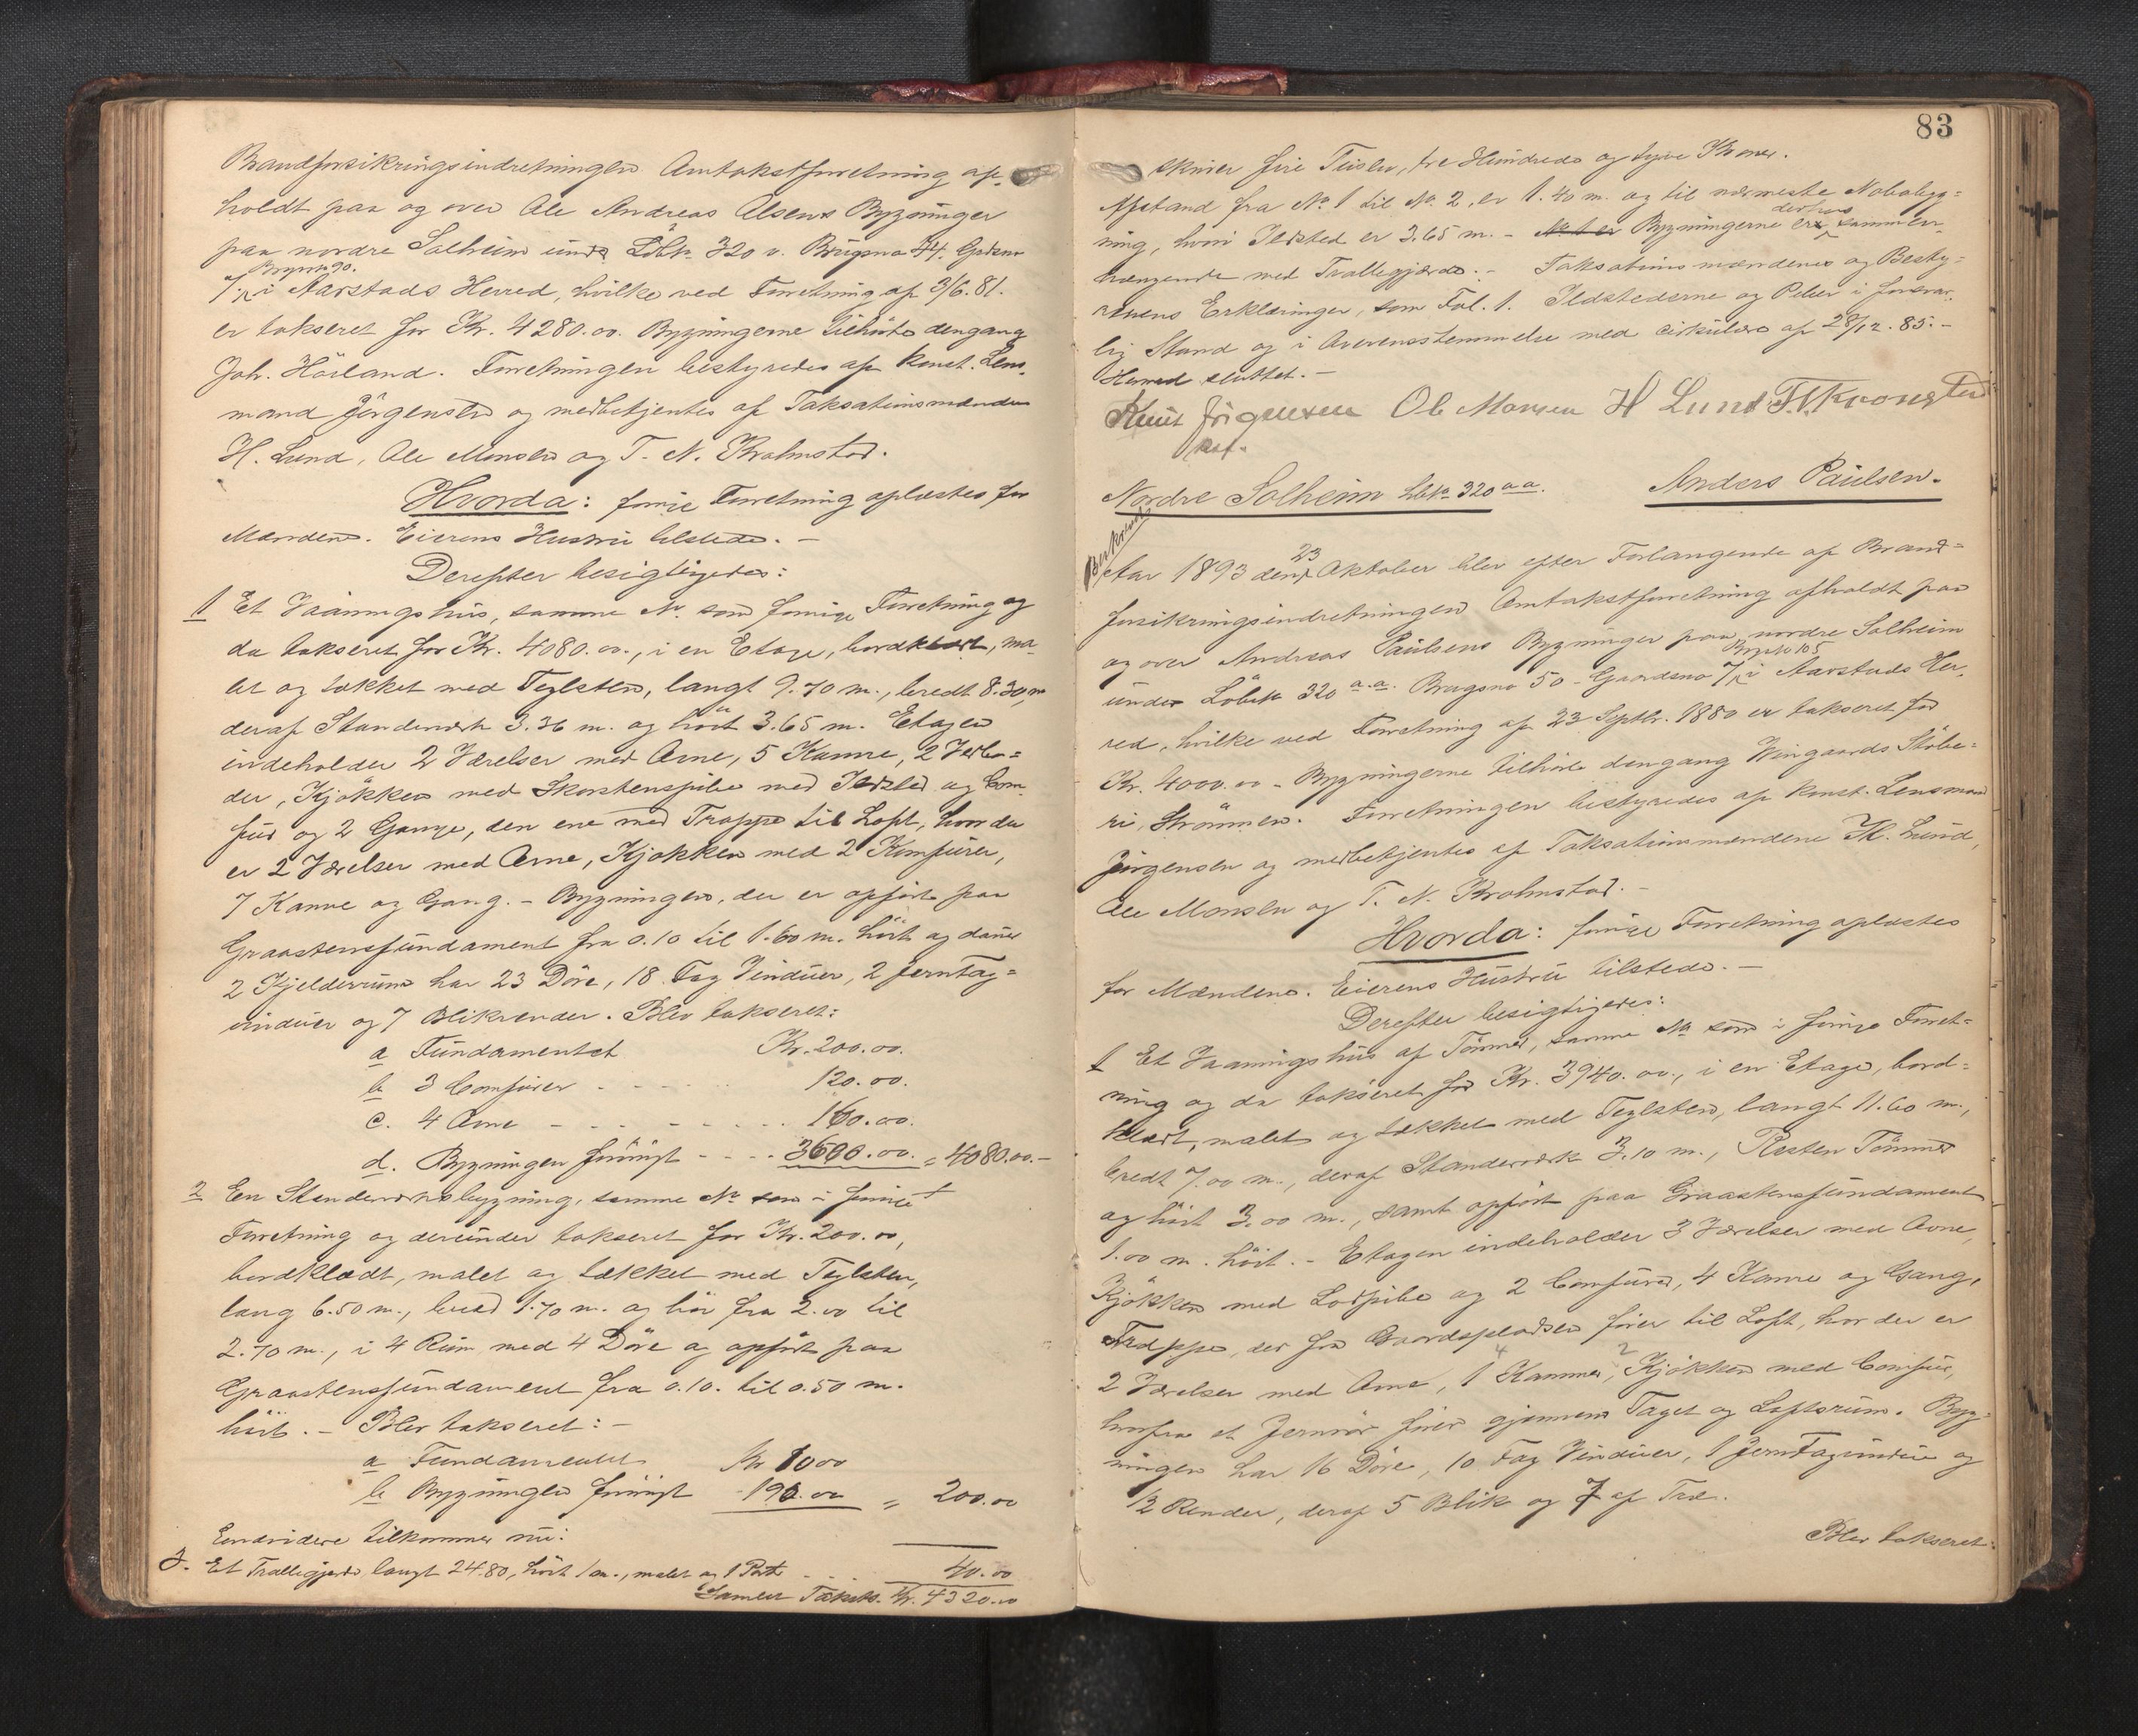 Brandforsikringsindretningen Omtakstforretning af-
holdt paa og over Ole Andreas Olsens Bygninger
paa nordre Solheim under Löbn 320 v. Brugsno 44. Gaardsno
7. i Aarstads Herred, hvilke ved Forretning af 3/6. 81.
Bygnr 90.
er takseret for Kr. 4280.00. Bygningerne tilhörte dengang
Joh. Hörland. Forretningen bestyredes af konst. Lens-
mand Jörgensen og medbetjentes af Taksationsmændene
H. Lund, Ole Monsen og T. N. Krohnstad.
Hvorda: forrige Forretning oplæstes for
Mændene. Eierens Hustru tilstede. -
Derefter besigtigedes:
1 Et Vaaningshus, samme No som forrige Forretning og
da takseret for Kr. 4080.00., i en Etage, bordklædt, ma-
let og tækket med Teglsten, langt 9.70 m., bredt 8.30 m
deraf Standerværk 3.36 m. og höit 3.65 m. Etagen
indeholder 2 Værelser med Ovne, 5 Kamre, 2 Spisebo-
der, Kjökken med Skorstenspibe med Ildsted og Com-
fur og 2 Gange, den ene med Trappe til Loft, hvor der
er 2 Værelser med Ovne, Kjökken med 2 Komfurer,
7 Kamre og Gang. - Bygningen, der er opfört paa
Graastensfundament fra 0.10 til 1.60 m. höit og danner
2 Kjelderrum har 23 Döre, 18 Fag Vinduer, 2 Jerntag-
vinduer og 7 Blikrender. Blev takseret:
a Fundamentet Kr. 200.00.
b 3 Comfurer - - - 120.00.
c. 4 Ovne - - - - - 160.00.
d. Bygningen forövrigt - - - - 3600.00. = 4080.00.-
2 En Standerværksbygning, samme No som i forrige
Forretning og derunder takseret for Kr. 200.00,
bordklædt, malet og tækket med Teglsten,
lang 6.50 m., bred 1.70 m. og höi fra 2.00 til
2.70 m., i 4 Rum med 4 Döre og opfört paa
Graastensfundament fra 0.10. til 0.50 m.
höit. - Blev takseret: -
a Fundamentet Kr 10 00
b Bygningen forövrigt - 190.00 = 200.00
Endvidere tilkommer nu:
3. Et Trallegjærde, langt 24.80, höit 1 m., malet og 1 Port - - - 40.00
Samlet Takst. Kr. 4320.00
83
skriver fire Tusen, tre Hundrede og tyve Kroner.
Afstand fra No 1 til No. 2. er 1.40 m. og til nærmeste Nabobyg-
ning, hvori Ildsted er 3.65 m. - No 1 er Bygningerne er derhos sammen-
hængende med Trallegjærde. - Taksationsmændenes og Besty-
rerens Erklæringer, som Fol. 1. Ildstederne og Piber i forsvar-
lig Stand og i Overensstemmelse med Cirkulære af 28/12. 85. -
Hermed sluttet. -
Knut Jörgensen Ole Monsen H Lund T. N. Kronstad
kst.
Nordre Solheim Lbn 320 aa. Anders Paulsen.
Beskrevet
Aar 1893 den 23 Oktober blev efter Forlangende af Brand-
forsikringsindretningen Omtakstforretning afholdt paa
og over Andreas Paulsens Bygninger paa nordre Solheim
under Löbn 320 a.a. Brugsno 50 - Gaardsno 7, i Aarstads Her-
Bygn 105
red, hvilke ved Forretning af 23 Septbr. 1880 er takseret for
Kr. 4000.00 - Bygningerne tilhörte dengang Wingaards Stöbe-
ri, Strömmen. Forretningen bestyredes af konst. Lensmand
Jörgensen og medbetjentes af Taksationsmændene H. Lund,
Ole Monsen og T. N. Krohnstad. -
Hvorda: forrige Forretning oplæstes
for Mændene. Eierens Hustru tilstede. -
Derefter besigtigedes:
1 Et Vaaningshus af Tömmer, samme No som i forrige Forret-
ning og da takseret for Kr. 3940.00., i en Etage, bord-
klædt, malet og tækket med Teglsten, langt 11.60 m.,
bredt 7.00 m., deraf Standerværk 3.10 m., Resten Tömmer
og höit 3.00 m., samt opfört paa Graastensfundament
1.00 m. höit. - Etagen indeholder 3 Værelser med Ovne,
Kjökken med Lodpibe og 2 Comfurer, 4 Kamre og Gang,
Trappe, der fra Gaardspladsen förer til Loft, hvor der er
2 Værelser med Ovne, 1 4 Kammer, 2 Kjökken med Comfur,
hvorfra et Jernrör förer gjennem Taget og Loftsrum. Byg-
ningen har 16 Döre, 10 Fag Vinduer, 1 Jerntagvindue og
12 Render, deraf 5 Blik og 7 af Træ.
Blev takseret: